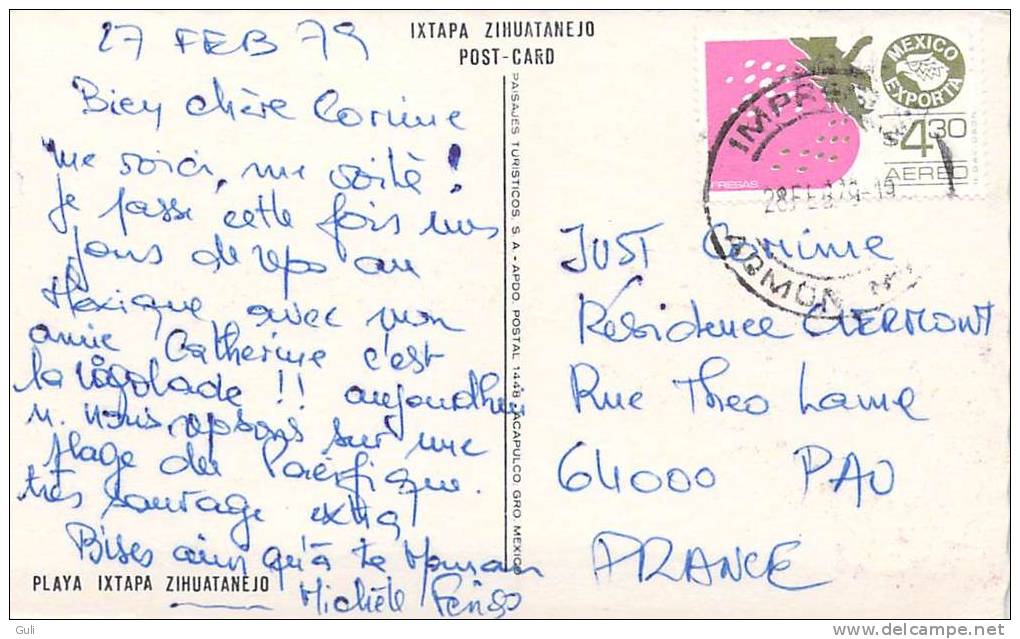 27 FEB 79
IXTAPA ZIHUATANEJO
POST-CARD
Bien chère Corinne
me voici, me voilà !
Je passe cette fois mes
jours de repos au
Mexique avec mon
amie Catherine c'est
la rigolade !! aujourd'hui
n. nous reposons sur une
plage du Pacifique.
très sauvage extra
Bises ainsi qu'à ta Maman
Michèle
PLAYA IXTAPA ZIHUATANEJO
PAISAJES TURISTICOS, S. A. - APDO. POSTAL 1448 ACAPULCO, GRO. MEXICO
MEXICO
EXPORTA
$4.30
AEREO
FRESAS
28 FEB 79-19
JUST Corinne
Résidence CLERMONT
Rue Theo Lame
64000 PAU
FRANCE
Guli
http://www.delcampe.net